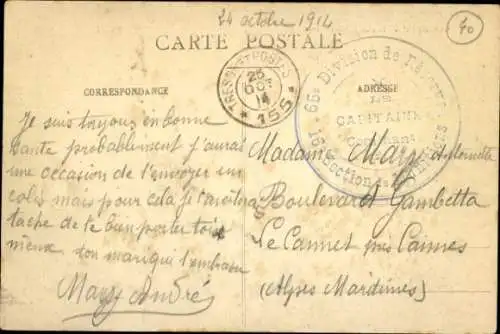 24 octobre 1914
40
CARTE POSTALE
CORRESPONDANCE
ADRESSE
TRESOR ET POSTES
25
OCT
14
* 155 *
65e Division de Réserve
LE
CAPITAINE
16e Section de
Je suis toujours en bonne
sante probablement j'aurai
une occasion de t'envoyer un
colis mais pour cela je
tache de te bien porter toi
mieux ton mari qui t'embrasse
Mary André
Madame Mary
Boulevard Gambetta
Le Cannet près Cannes
(Alpes Maritimes)